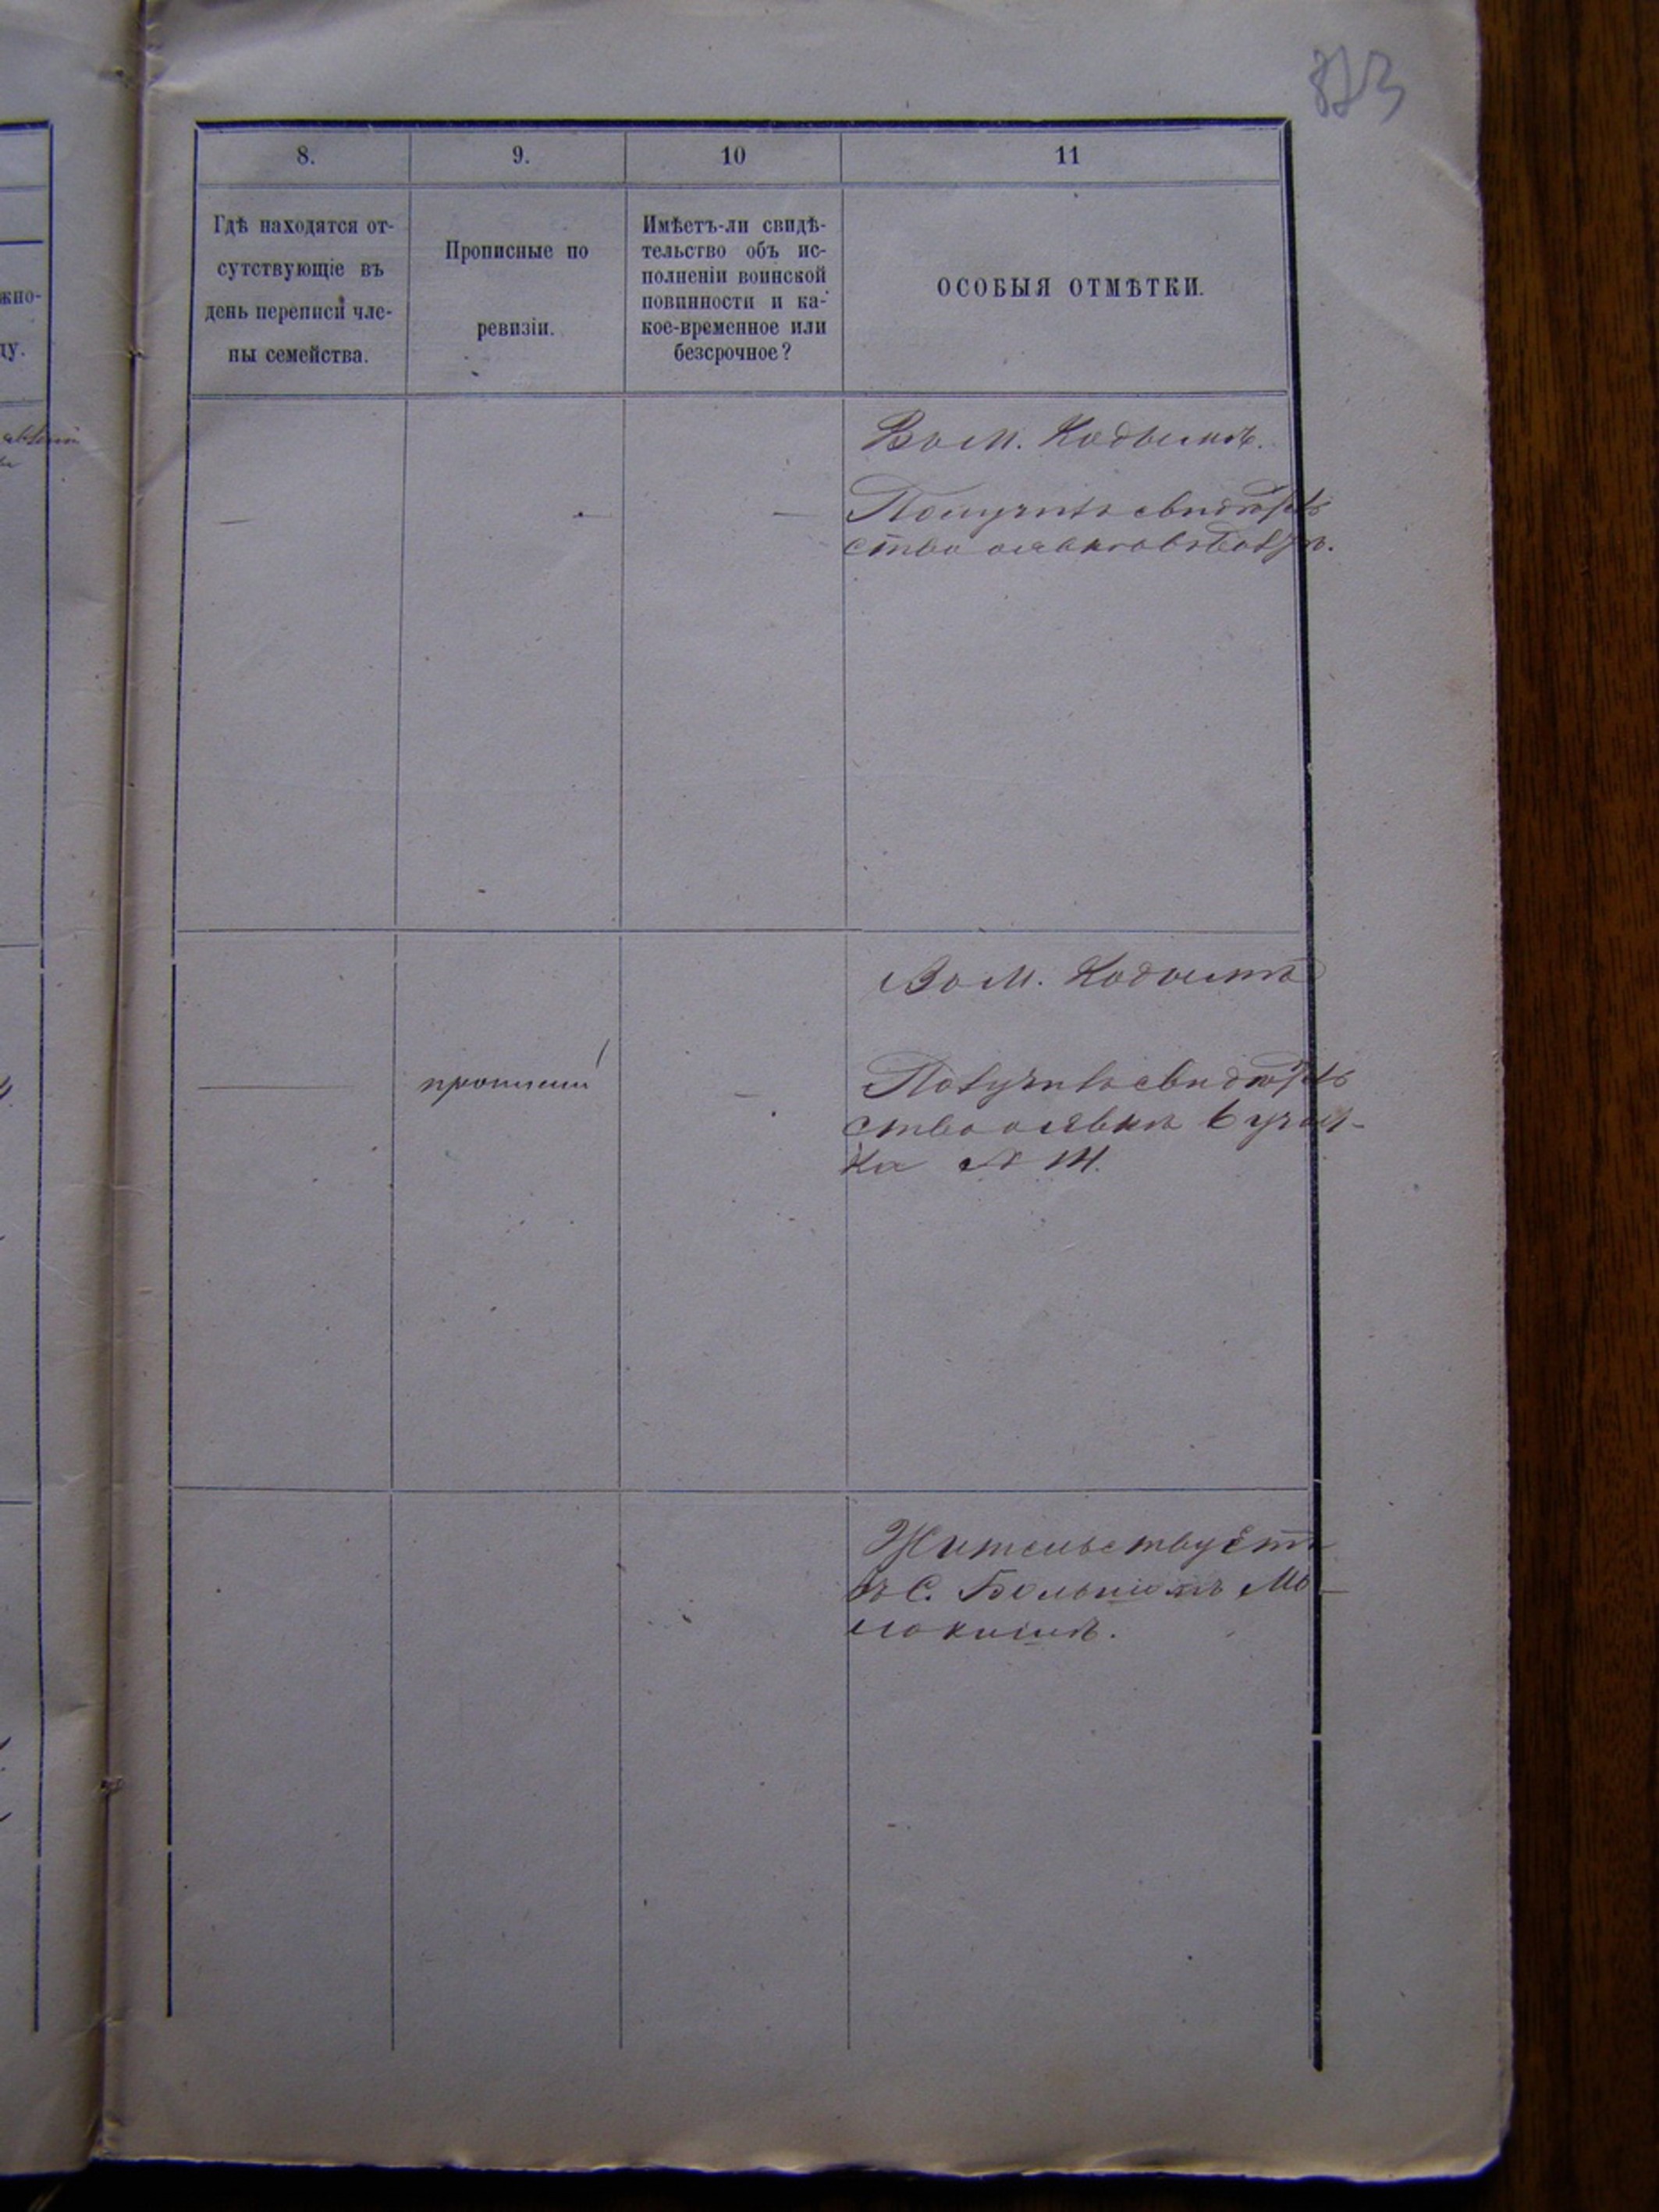 823
8.
9.
10
11
Гдѣ находятся от-
сутствующіе въ
день переписи чле-
ны семейства.
Прописные по
ревизіи.
Имѣетъ-ли свидѣ-
тельство объ ис-
полненіи воинской
повинности и ка-
кое-временное или
безсрочное?
ОСОБЫЯ ОТМѢТКИ.
жно-
ду.
Въ м. Кодымѣ.
Получилъ свидѣтель
ство о явкѣ
Въ м. Кодымѣ
прописной
Получилъ свидѣтель
ство о явкѣ 6 участ-
ка №
Жительствуетъ
въ С. Большомъ Мо-
локишѣ.